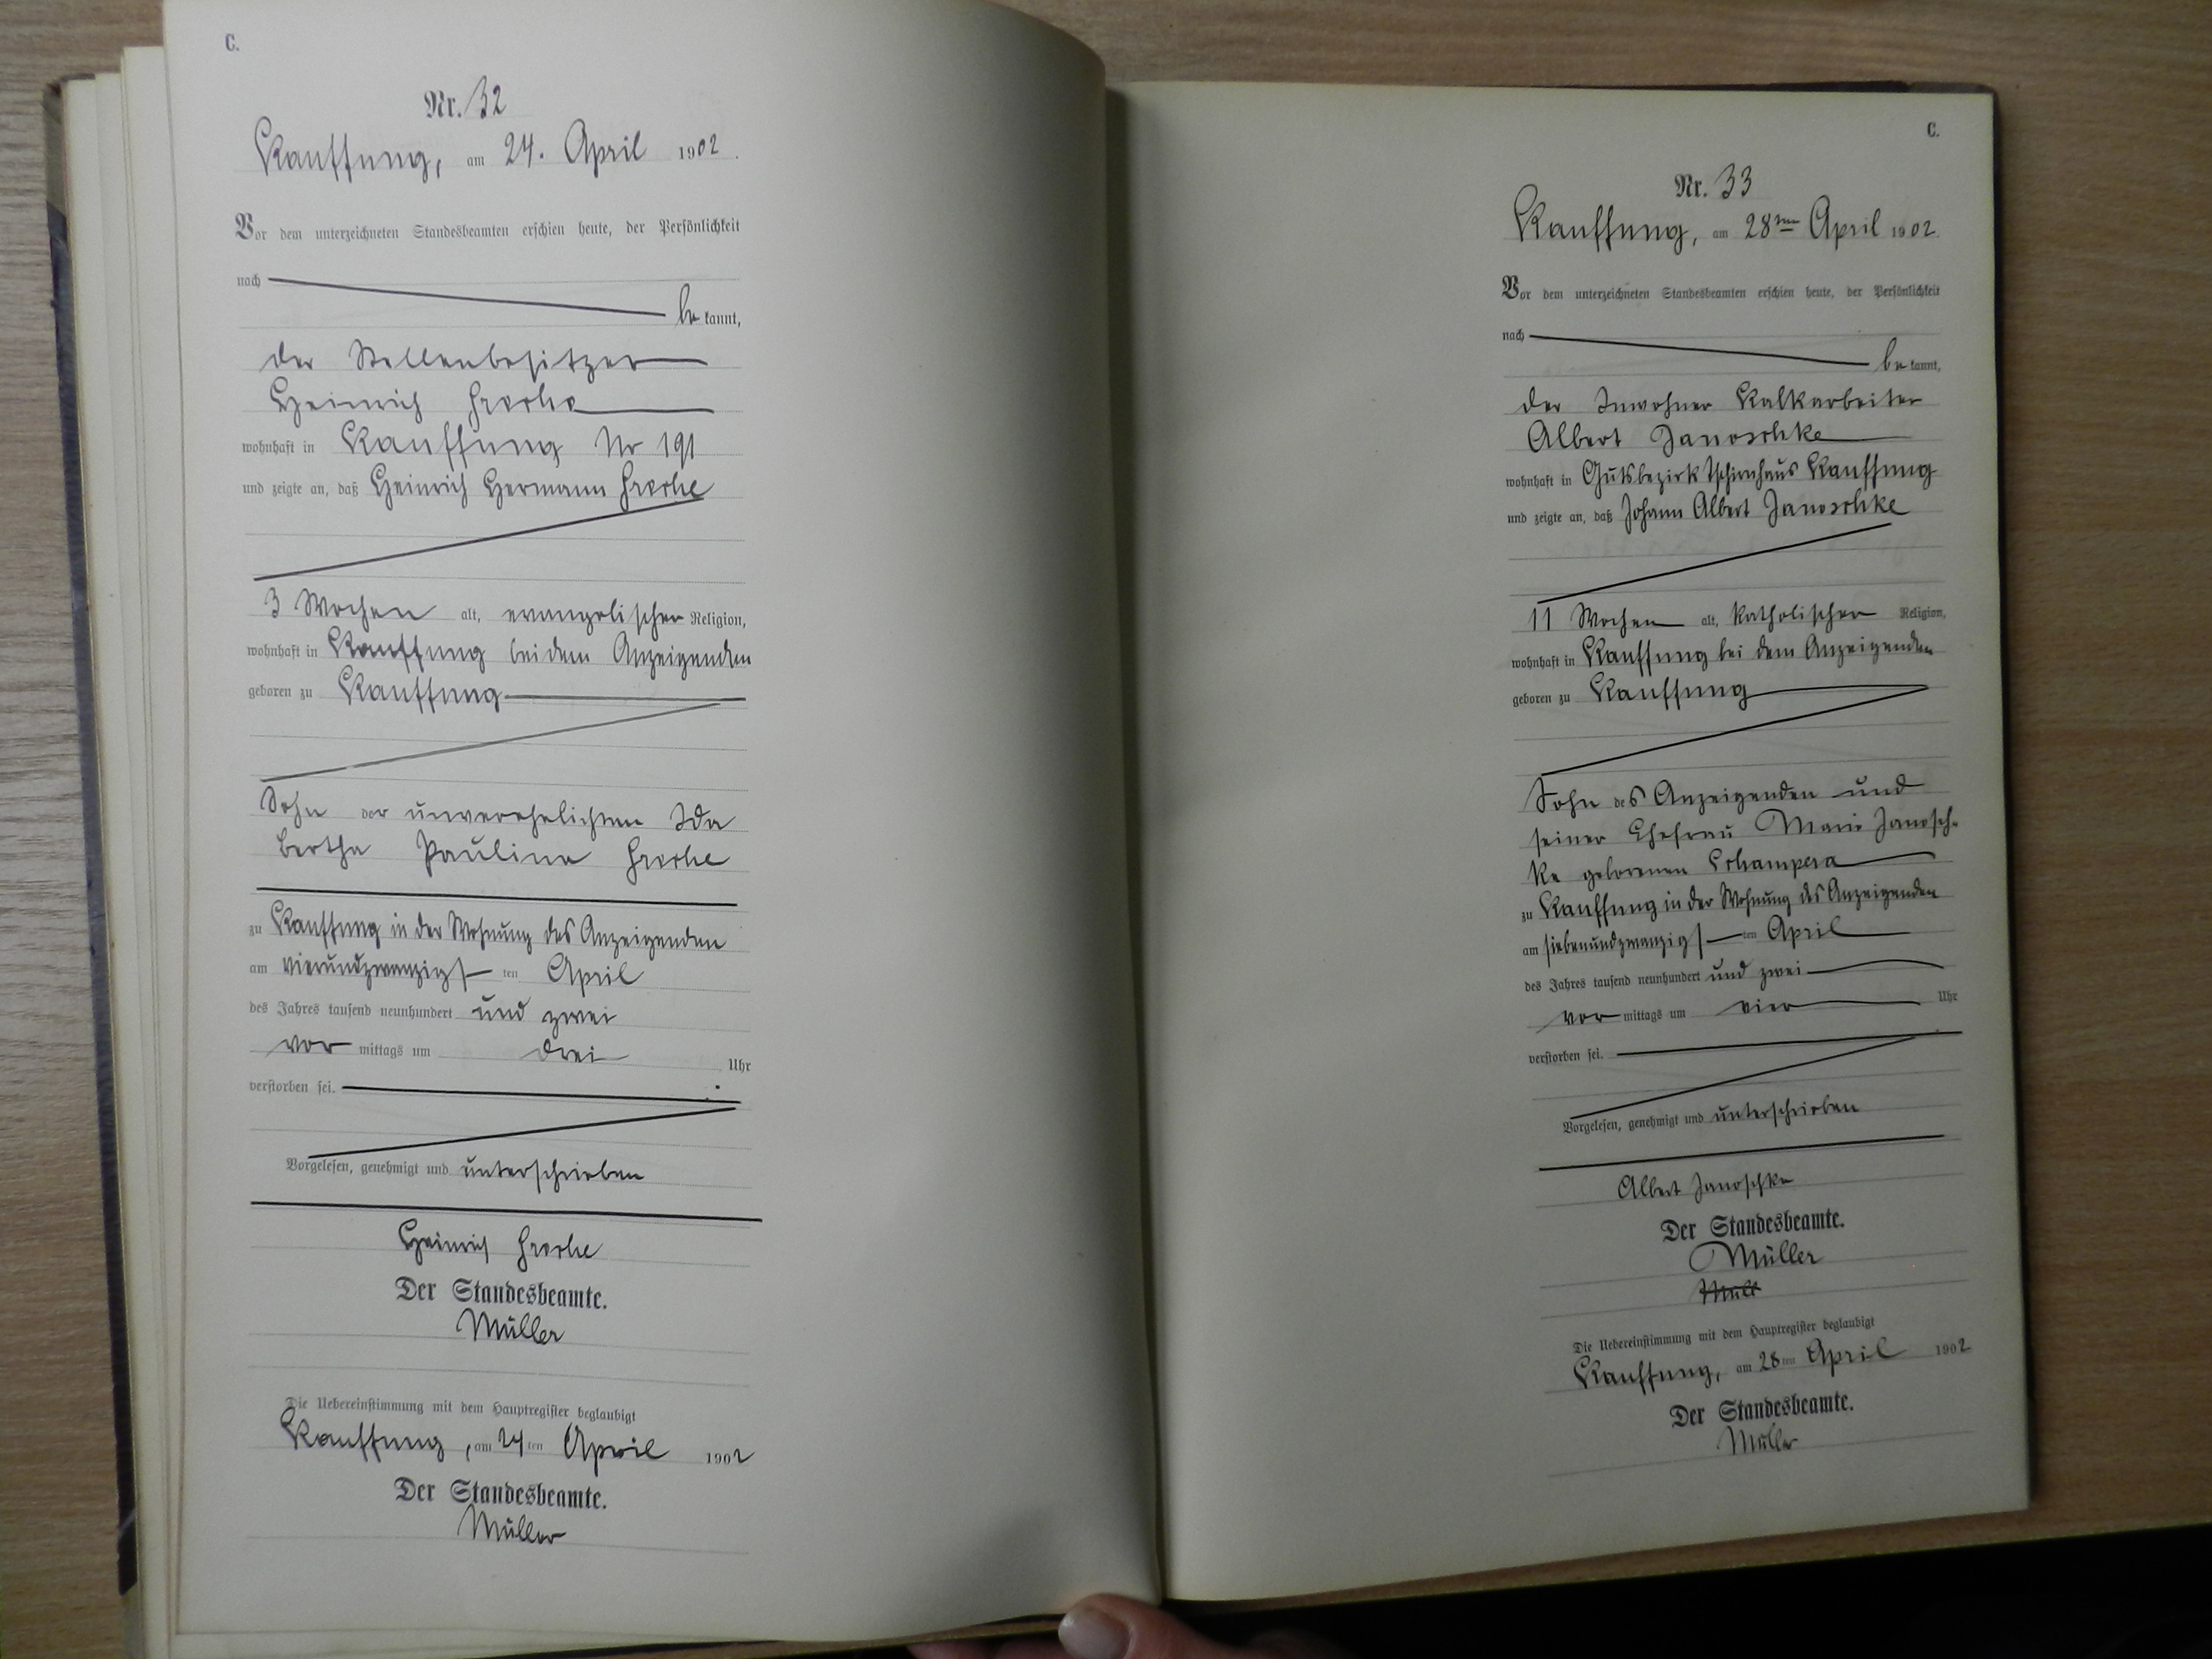 C.
Nr. 32
Kauffung, am 24. April 1902.
Vor dem unterzeichneten Standesbeamten erschien heute, der Persönlichkeit
nach
be kannt,
der Stellenbesitzer
Heinrich
wohnhaft in Kauffung Nr 191
und zeigte an, daß Heinrich Hermann
3 Wochen alt, evangelischer Religion,
wohnhaft in Kauffung bei dem Anzeigenden
geboren zu Kauffung
Sohn der unverehelichten Ida
Bertha Pauline
zu Kauffung in der Wohnung des Anzeigenden
am vierundzwanzigs ten April
des Jahres tausend neunhundert und zwei
vor mittags um drei Uhr
verstorben sei.
Vorgelesen, genehmigt und unterschrieben
Heinrich
Der Standesbeamte.
Müller
Die Uebereinstimmung mit dem Hauptregister beglaubigt
Kauffung, am 24 ten April 1902
Der Standesbeamte.
Müller
C.
Nr. 33
Kauffung, am 28ten April 1902.
Vor dem unterzeichneten Standesbeamten erschien heute, der Persönlichkeit
nach
be kannt,
der Inwohner Kalkarbeiter
Albert Janoschke
wohnhaft in Gutsbezirk Tschirnhaus Kauffung
und zeigte an, daß Johann Albert Janoschke
11 Wochen alt, katholischer Religion,
wohnhaft in Kauffung bei dem Anzeigenden
geboren zu Kauffung
Sohn des Anzeigenden und
seiner Ehefrau Marie Janosch-
ke geborenen Schampera
zu Kauffung in der Wohnung des Anzeigenden
am siebenundzwanzigs ten April
des Jahres tausend neunhundert und zwei
vor mittags um vier Uhr
verstorben sei.
Vorgelesen, genehmigt und unterschrieben
Albert Janoschke
Der Standesbeamte.
Müller
Die Uebereinstimmung mit dem Hauptregister beglaubigt
Kauffung, am 28 ten April 1902
Der Standesbeamte.
Müller